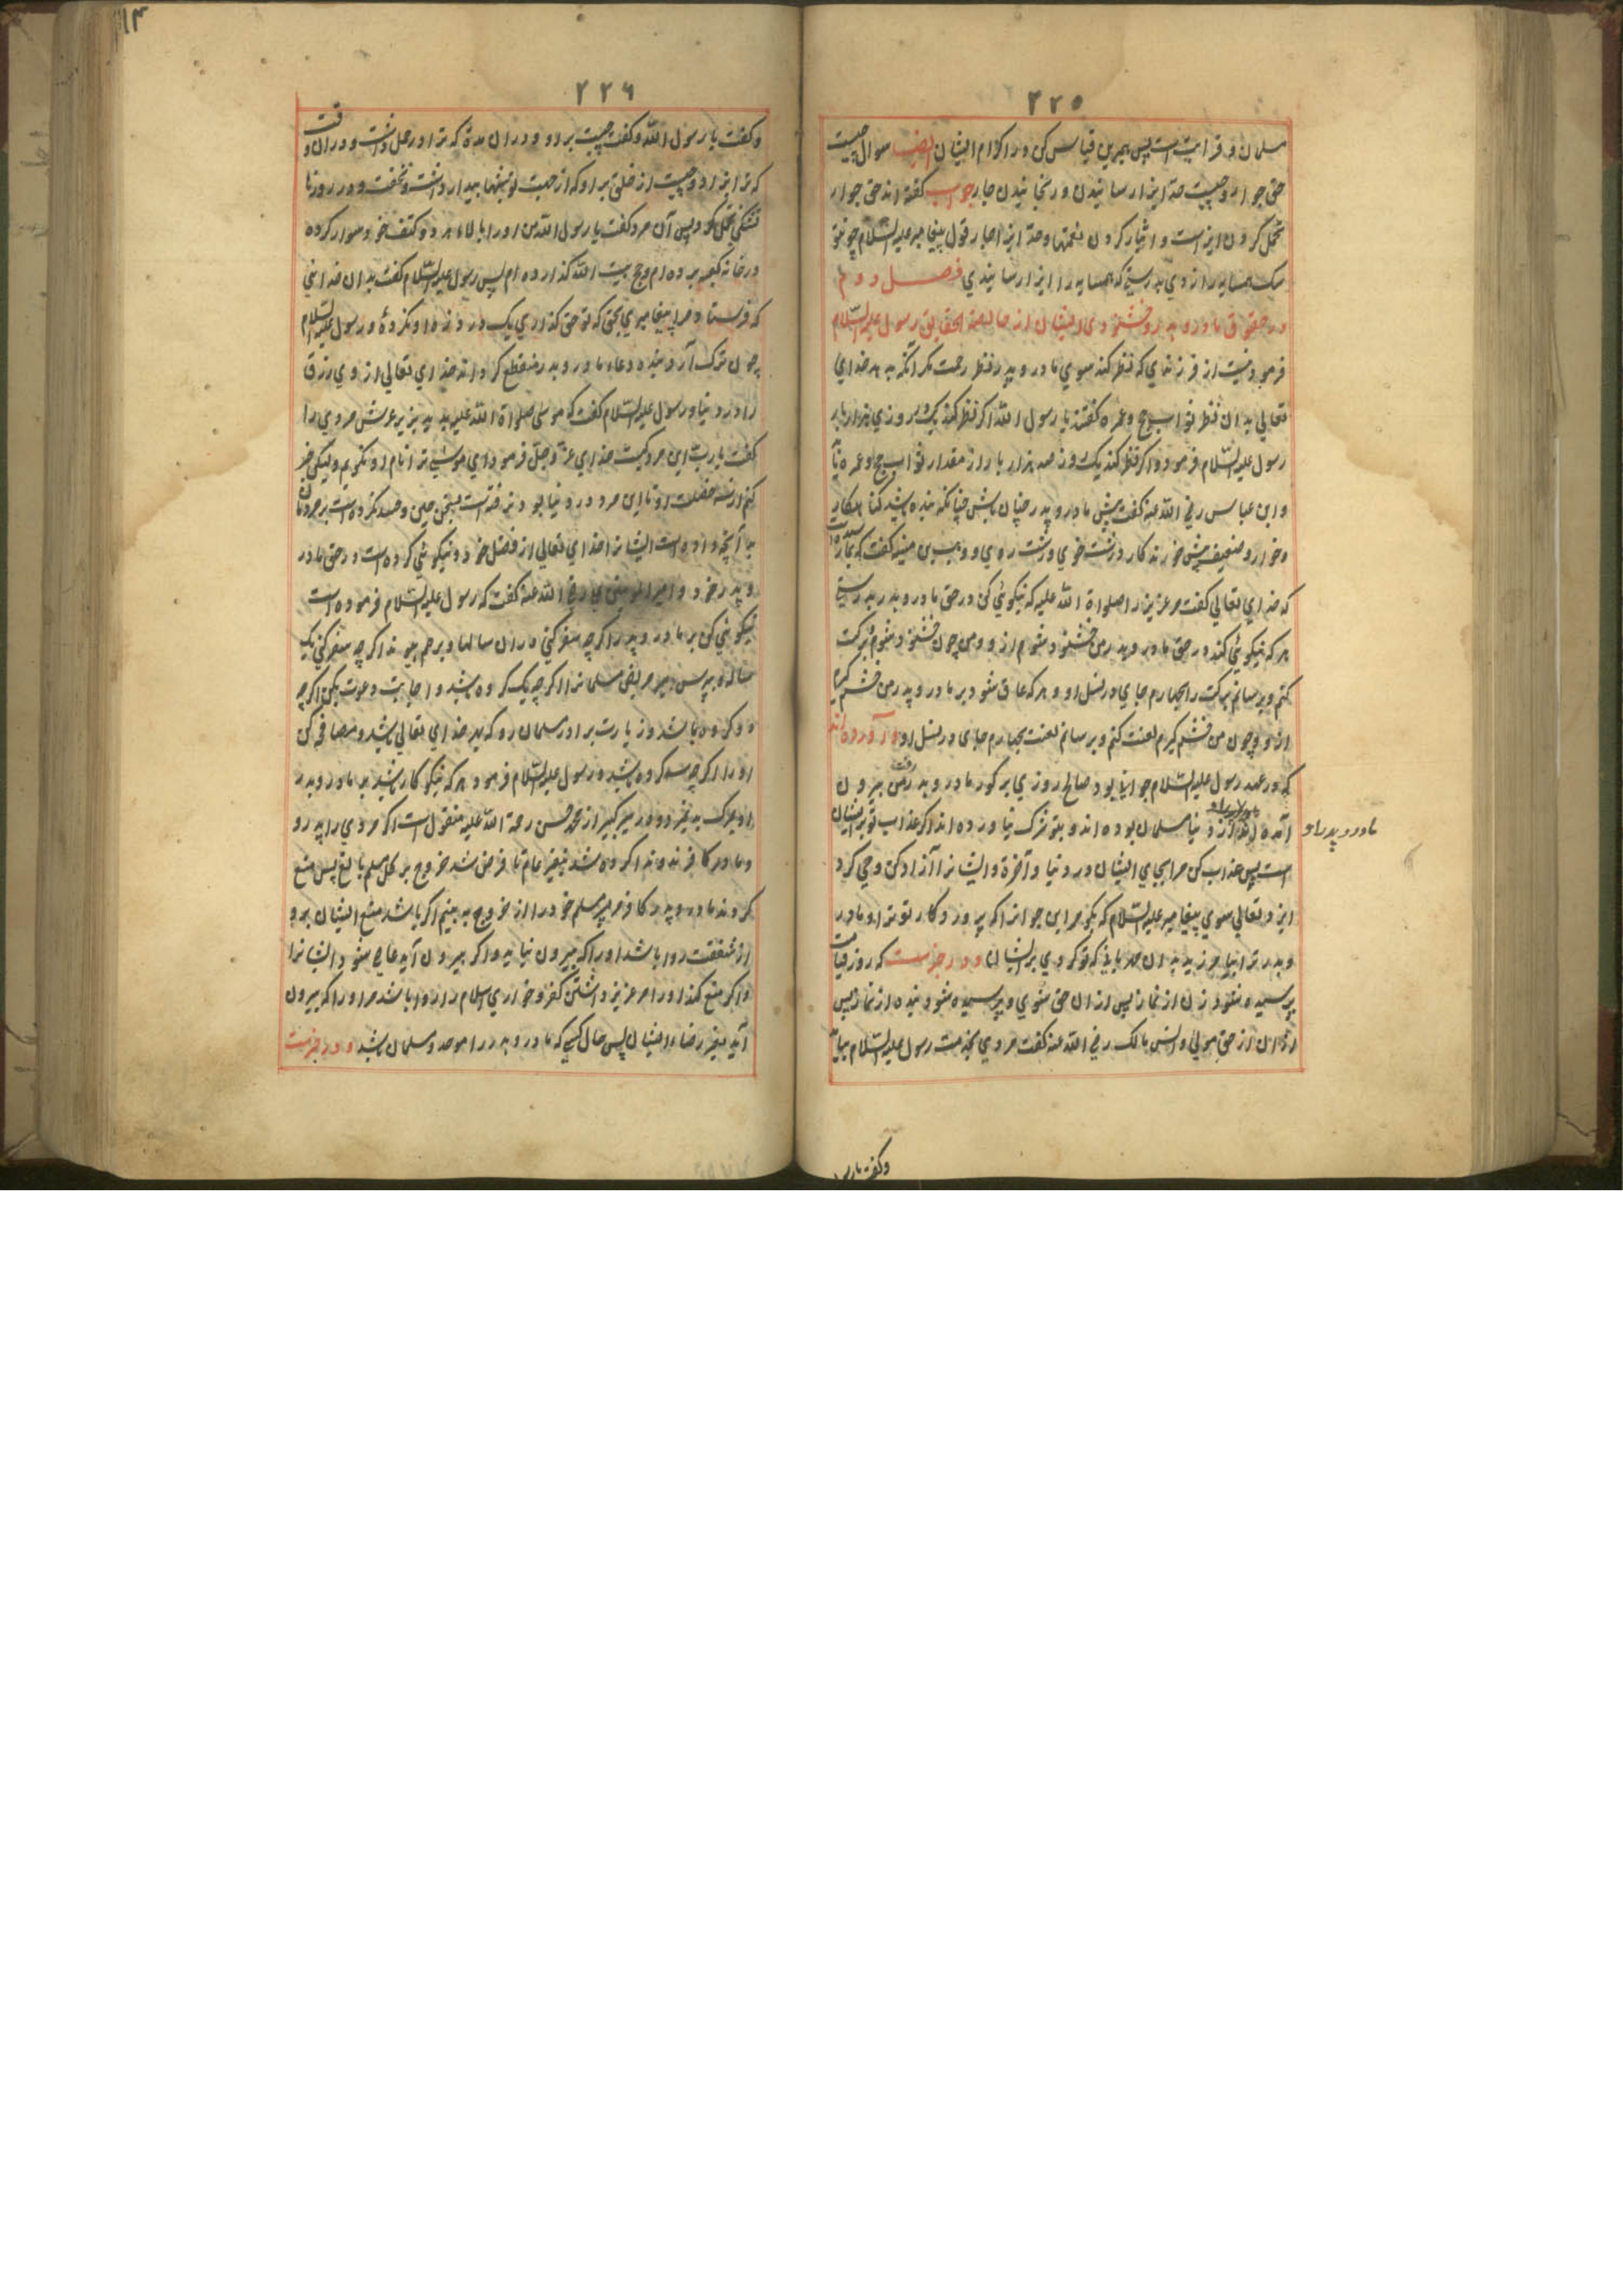 ۲۲۵
مسلمان و قرابت است پس بهمرین قیاس کن در اکرام ایشان ایضا سوال چیست
حق جوار و چیست حد ایذا رسانیدن و رنجانیدن جار جواب گفته اند حق جوار
تحمل کردن ایذا است و ایثار کردن نعمتها وحد ایذا جار قول پیغامبر علیه السلام چو تو
سگ همسایه را زدی بدرستیکه همسایه را ایذا رسانیدی فصل دوم
در حقوق مادر و پدر و خشنودی ایشان از خالصة الحقایق رسول علیه السلام
فرمود نیست از فرزندی که نظر کند سوی مادر و پدر نظر رحمت مگر آنکه بدهد خدای
تعالی بدان نظر ثواب حج و عمره گفتند یا رسول الله اگر نظر کند یک روزی هزار بار
رسول علیه السلام فرمود و اگر نظر کند یک روز صد هزار بار از مقدار ثواب حج و عمره
وابن عباس رضی الله عنه گفت پیش مادر و پدر چنان باش چنانکه بنده گناهکار
وخوار و ضعیف پیش خوندکار درشت خوی و زشت روی و وهب بن منبه گفت که
که خدای تعالی گفت مر عزیر را صلواة الله علیه که نیکوئی کن در حق مادر و پدر بدرستی
هر که نیکوئی کند در حق مادر و پدر من خشنود شوم ازو ومن چون خشنود شوم برکت
کنم و برسانم برکت را چهارم جای در نسل او و هر که عاق شود بر مادر و پدر من خشم گیرم
ازو و چون من خشم گیرم لعنت کنم و برسانم لعنت بچهارم جای در نسل او و آورده اند
که در عهد رسول علیه السلام جوانی بود صالح روزی بر گور مادر و پدر رفت بیرون
آمده از دنیا مسلمان بوده اند و بتو شرک نیاورده اند اگر عذاب تو بر ایشان
مادر و پدر او
است پس عذاب کن مرا بجای ایشان در دنیا و آخرة و ایشانرا آزاد کن وحی کرد
ایزد تعالی سوی پیغامبر علیه السلام که بگو مر این جوانرا که پروردکار تو ترا و مادر
و پدر ترا بیامرزید بدان مهربانی که تو کردی بر ایشان و در خبرست که روز قیامت
پرسیده شود زن از نماز پس ازان حق شوی و پرسیده شود بنده از نماز پس
ازان از حق مولی و انس مالک رضی الله عنه گفت مردی بخدمت رسول علیه السلام بیامد
۲۲۶
وگفت یا رسول الله وگفت چیست بر دو و دران مدة که ترا در حمل داشت و دران وقت
که ترا بزاد و چیست از خلق بر او که از جهت تو شبها بیدار داشت و نخفت و در روزها
تشنگی تحمل نمود پس آن مرد گفت یا رسول الله من او را بالاء هر دو کتف خود سوار کرده
در خانه کعبه برده ام و حج بیت الله گذارده ام پس رسول علیه السلام گفت بدان خدائی
که فرستاد مرا پیغامبری بحق که تو حق گذاری یک درد زه او نکرده و رسول علیه السلام
چون ترک آرد بنده دعاء مادر و پدر منقطع گرداند خدای تعالی از وی رزق
را در دنیا و رسول علیه السلام گفت که موسی صلواة الله علیه بدید بزیر عرش مردی را
گفت یا رب این مرد کیست خدای عز و جل فرمود ای موسی ترا نام او نگویم ولیکن خبر
کنم از سه خصلت او تا این مرد در دنیا بود نرفته است بسخن چینی وحسد نکرده است بر مردمان
به آنچه داده است ایشانرا خدای تعالی از فضل خود و نیکوئی کرده است در حق مادر
و پدر خود و امیر المومنین علی رضی الله عنه گفت که رسول علیه السلام فرموده است
نیکوئی کن بر مادر و پدر اگر چه سفر کنی دران سالها و برحم پیوند اگر چه سفر کنی یک
ساله بپرس مر مریض مسلمانرا اگر چه یک کروه باشد و اجابت دعوت بکن اگر چه
دو کروه باشد و زیارت برادر مسلمان رو که بهر خدای تعالی باشد و مصافحه کن
او را اگر چه سه کروه باشد و رسول علیه السلام فرمود هر که نیکو کار باشد بر مادر و پدر
او بمرگ بد نمیرد و در سیر کبیر از محمد حسن رحمة الله علیه منقول است اگر مردی را پدر
و مادر کافر بودند اگر ده شد نفیر عام تا فرض شد خروج بر کل مسلم بالغ پس منع
کردند مادر و پدر کافر مر پسر مسلم خود را از خروج به بینیم اگر باشد منع ایشان برو
از شفقت روا باشد او را که بیرون نیاید و اگر بیرون آید عاصی شود ایشانرا
و اگر منع کند او را مر عزیز داشتن کفر و خواری اسلام را روا باشد مر او را که بیرون
آید بغیر رضاء ایشان پس حال کسی که مادر و پدر را موحد و مسلمان باشد و در خبرست